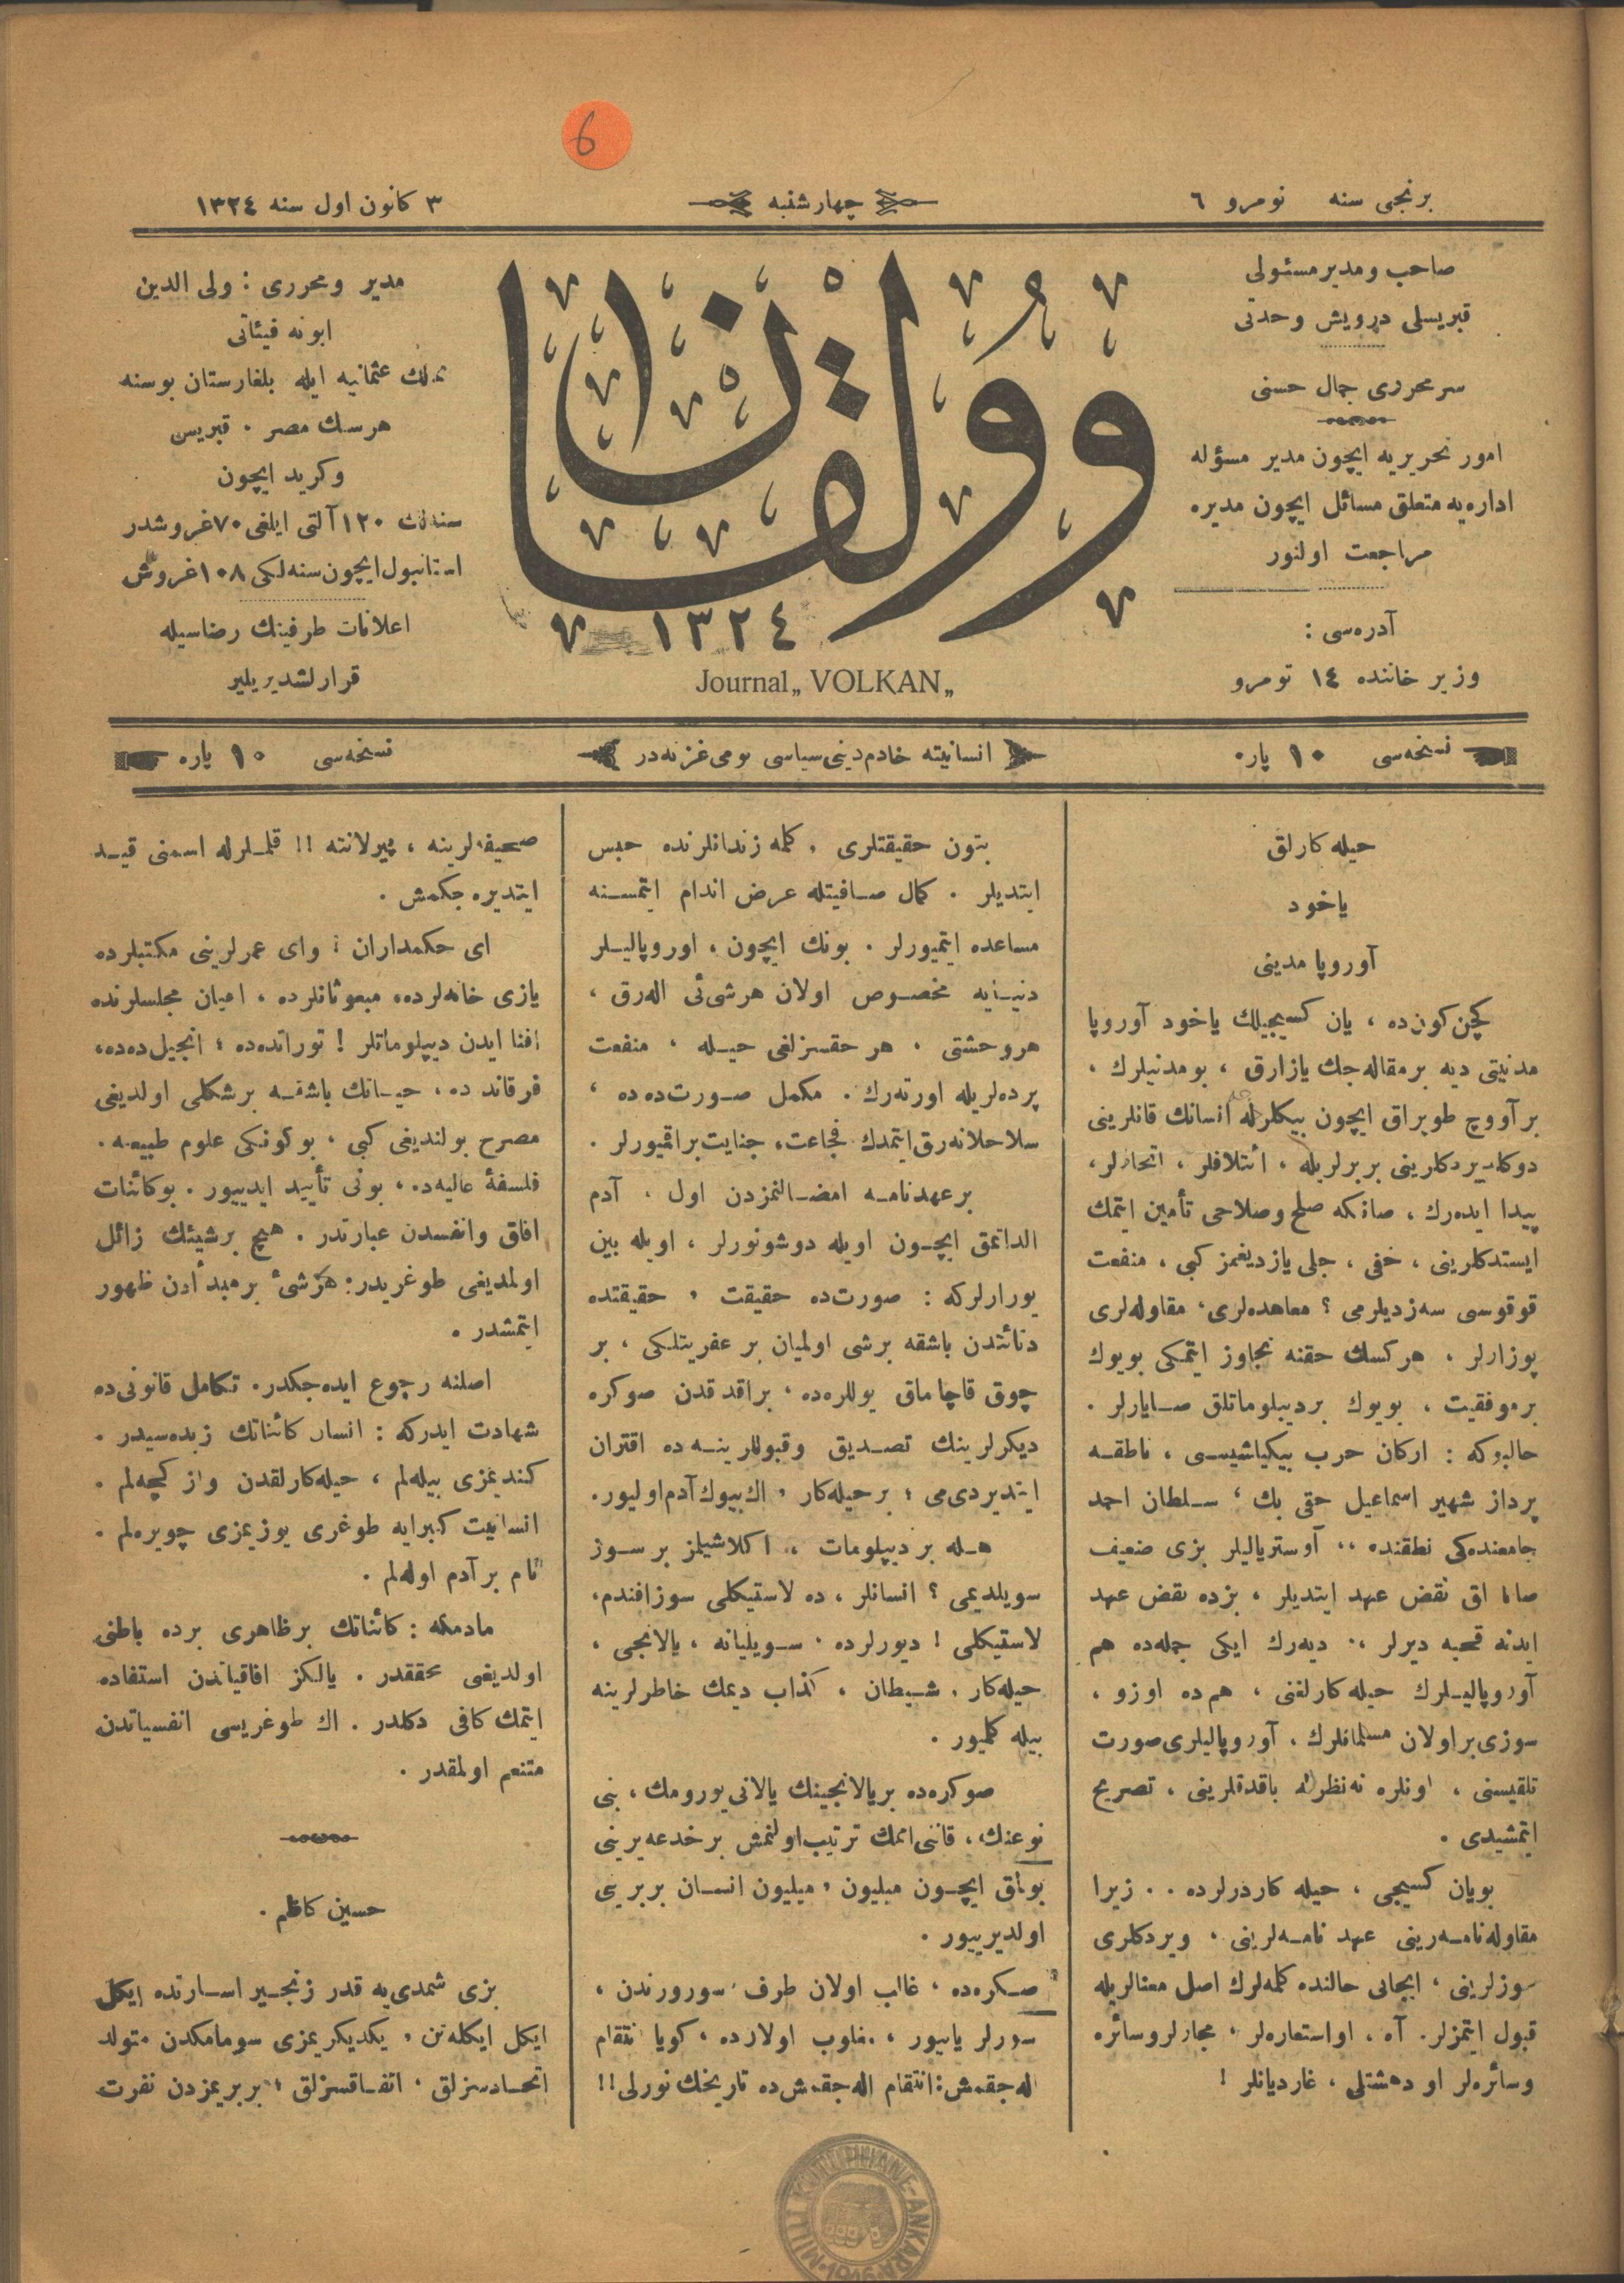 6
برنجی سنه نومرو ٦
چهارشنبه
٣ كانون اول سنه ١٣٢٤
صاحب ومدیر مسئولی
قبریسلی درویش وحدتی
سرمحرری جمال حسنی
امور تحریریه ایچون مدیر مسؤله
اداره‌یه متعلق مسائل ایچون مدیره
مراجعت اولنور
آدره‌سی :
وزیر خاننده ١٤ نومرو
وولقان
١٣٢٤
Journal „ VOLKAN „
مدیر ومحرری : ولی الدین
ابونه فیئاتی
ممالك عثمانیه ایله بلغارستان بوسنه
هرسك مصر . قبریس
وكرید ایچون
سنه‌لك ١٢٠ آلتی ایلغی ٧٠ غروشدر
استانبول ایچون سنه‌لكی ١٠٨ غروش
اعلانات طرفینك رضاسیله
قرارلشدیریلیر
نسخه‌سی ١٠ پاره
انسانیته خادم دینی سیاسی یومی غزته‌در
نسخه‌سی ١٠ پاره
حیله كارلق
یاخود
آوروپا مدینی
كچن كون‌ده ، یان كسیجیلك یاخود آوروپا
مدنیتی دیه برمقاله‌جك یازارق ، بومدنیلرك ،
برآووچ طوپراق ایچون بیكلرله انسانك قانلرینی
دوكدیردكلرینی بربرلریله ، ائتلافلر ، اتحادلر،
پیدا ایده‌رك ، صانكه صلح وصلاحی تأمین ایتمك
ایستدكلرینی ، خفی ، جلی یازدیغمز كبی ، منفعت
قوقوسی سه‌زدیلرمی ؟ معاهده‌لری، مقاوله‌لری
بوزارلر ، هركسك حقنه تجاوز ایتمكی بویوك
برموفقیت ، بویوك بردیپلوماتلق صایارلر .
حالبوكه : اركان حرب بیكباشیسی ، ناطقه
پرداز شهیر اسماعیل حقی بك ، سلطان احمد
جامعنده‌كی نطقنده ،، آوستریالیلر بزی ضعیف
صانارق نقض عهد ایتدیلر ، بزده نقض عهد
ایدنه قحبه دیرلر ،، دیه‌رك ایكی جمله‌ده هم
آوروپالیلرك حیله كارلغنی ، هم‌ده اوزو ،
سوزی براولان مسلمانلرك ، آوروپالیلری صورت
تلقیسنی ، اونلره نه نظرله باقدقلرینی ، تصریح
ایتمشیدی .
بویان كسیجی ، حیله كاردرلرده . . زیرا
مقاوله‌نامه‌رینی عهد نامه‌لرینی ، ویردكلری
سوزلرینی ، ایجابی حالنده كلمه‌لرك اصل معنالریله
قبول ایتمزلر. آه ، اواستعاره‌لر ، مجازلروسائره
وسائره‌لر او دهشتلی ، غاردیانلر !
بتون حقیقتلری ، كلمه زندانلرنده حبس
ایتدیلر . كمال صافیتله عرض اندام ایتمسنه
مساعده ایتمیورلر . بونك ایچون ، اوروپالیلر
دنیایه مخصوص اولان هرشی‌ئی اله‌رق ،
هروحشتی ، هر حقسزلغی حیله ، منفعت
پرده‌لریله اورته‌رك . مكمل صورت‌ده‌ده ،
سلاحلانه‌رق ایتمدك فجاعت، جنایت براقمیورلر .
برعهدنامه امضالنمزدن اول ، آدم
الداتمق ایچون اویله دوشونورلر ، اویله بین
یورارلركه : صورت‌ده حقیقت ، حقیقتده
دنائتدن باشقه برشی اولمیان بر عفریتلكی ، بر
چوق قاچاماق یوللره‌ده ، براقدقدن صوكره
دیكرلرینك تصدیق وقبوللرینه ده اقتران
ایتدیردی‌می ؛ برحیله‌كار ، اك بیوك آدم اولیور.
هله بر دیپلومات ، اكلاشیلمز بر سوز
سویلدیمی ؟ انسانلر ، ده لاستیكلی سوزافندم،
لاستیكلی ! دیورلرده . سویلیانه ، یالانجی ،
حیله‌كار ، شیطان ، كذاب دیمك خاطرلرینه
بیله كلمیور .
صوكره‌ده بریالانجینك یالانی یورومك ، بنی
نوعنك ، قاننی اتمك ترتیب اولنمش برخدعه‌یرینی
بولمق ایچون میلیون ، میلیون انسان بربرینی
اولدیرییور .
صكره‌ده ، غالب اولان طرف ، سورورندن ،
سورلر یاپیور ، مغلوب اولارده ، كویا انتقام
اله‌جقمش : انتقام اله‌جقمش‌ده تاریخك نورلی !!
صحیفه‌لرینه ، پیرلانته !! قلملرله اسمنی قید
ایتدیره جكمش .
ای حكمداران ؛ وای عمرلرینی مكتبلرده
یازی خانه‌لرده، مبعوثانلرده ، اعیان مجلسلرنده
افنا ایدن دیپلوماتلر ! تورات‌ده‌ده ؛ انجیل‌ده‌ده،
فرقانده ده ، حیاتك باشقه برشكلی اولدیغی
مصرح بولندیغی كبی ، بوكونكی علوم طبیعیه.
فلسفهٔ عالیه‌ده ، بونی تأیید ایدییور . بوكائنات
افاق وانفسدن عبارتدر . هیچ برشیئك زائل
اولمدیغی طوغریدر : هرشیء برمبدأدن ظهور
ایتمشدر .
اصلنه رجوع ایده‌جكدر. تكامل قانونی‌ده
شهادت ایدركه : انسان كائناتك زبده‌سیدر .
كندیمزی بیله‌لم ، حیله‌كارلقدن واز كچه‌لم .
انسانیت كبرایه طوغری یوزیمزی چویره‌لم .
تام بر آدم اوله‌لم .
مادمكه : كائناتك برظاهری برده باطنی
اولدیغی محققدر . یالكز افاقیاتدن استفاده
ایتمك كافی دكلدر . اك طوغریسی انفسیاتدن
متنعم اولمقدر .
حسین كاظم .
بزی شمدی‌یه قدر زنجیر اسارتده ایكل
ایكل ایكله‌تن ، یكدیكریمزی سومامكدن متولد
اتحادسزلق ، اتفاقسزلق ، بربریمزدن نفرت
MILLI KÜTÜPHANE-ANKARA